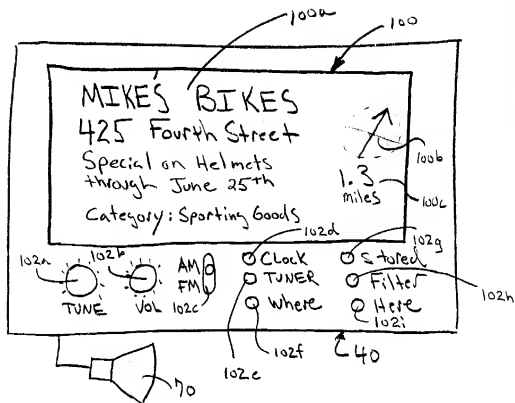 100a
100
MIKE'S BIKES
425 Fourth Street
Special on Helmets
through June 25th
Category: Sporting Goods
100b
1.3
miles
100c
102a
102b
102d
102g
TUNE
VOL
AM
FM
102c
Clock
TUNER
Where
Stored
Filter
Here
102h
102i
102e
102f
40
70